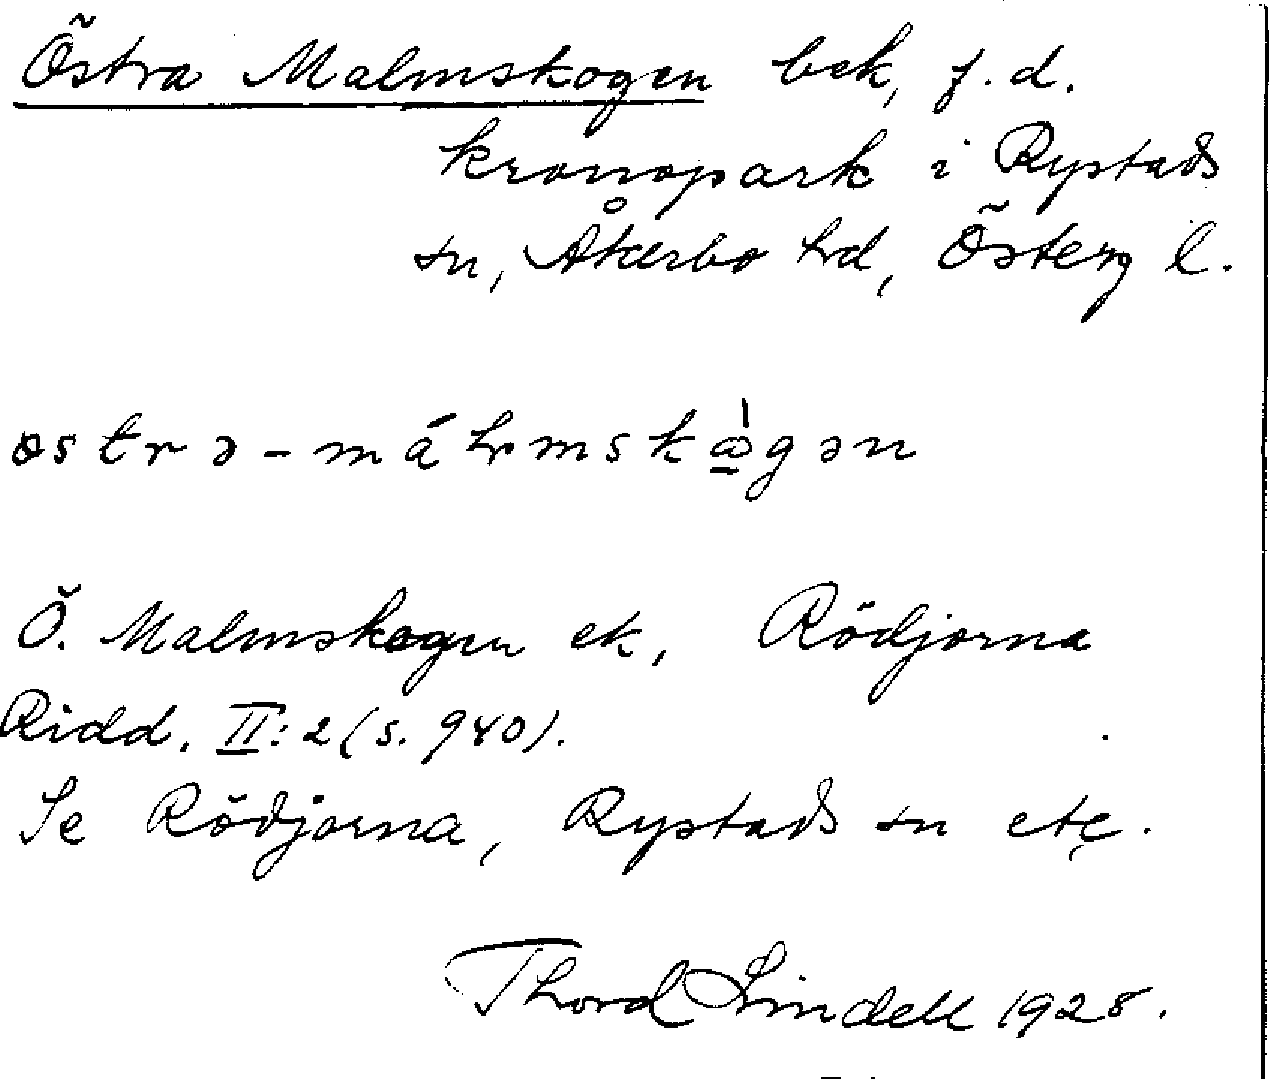 Östra Malmskogen bek, f.d.
kronopark i Rystads
sn, Åkerbo hd, Österg l.
Ö. Malmskogen ek, Rödjorna
Ridd. II:2 (s. 940).
Se Rödjorna, Rystads sn etc.
Thord Lindell 1928.